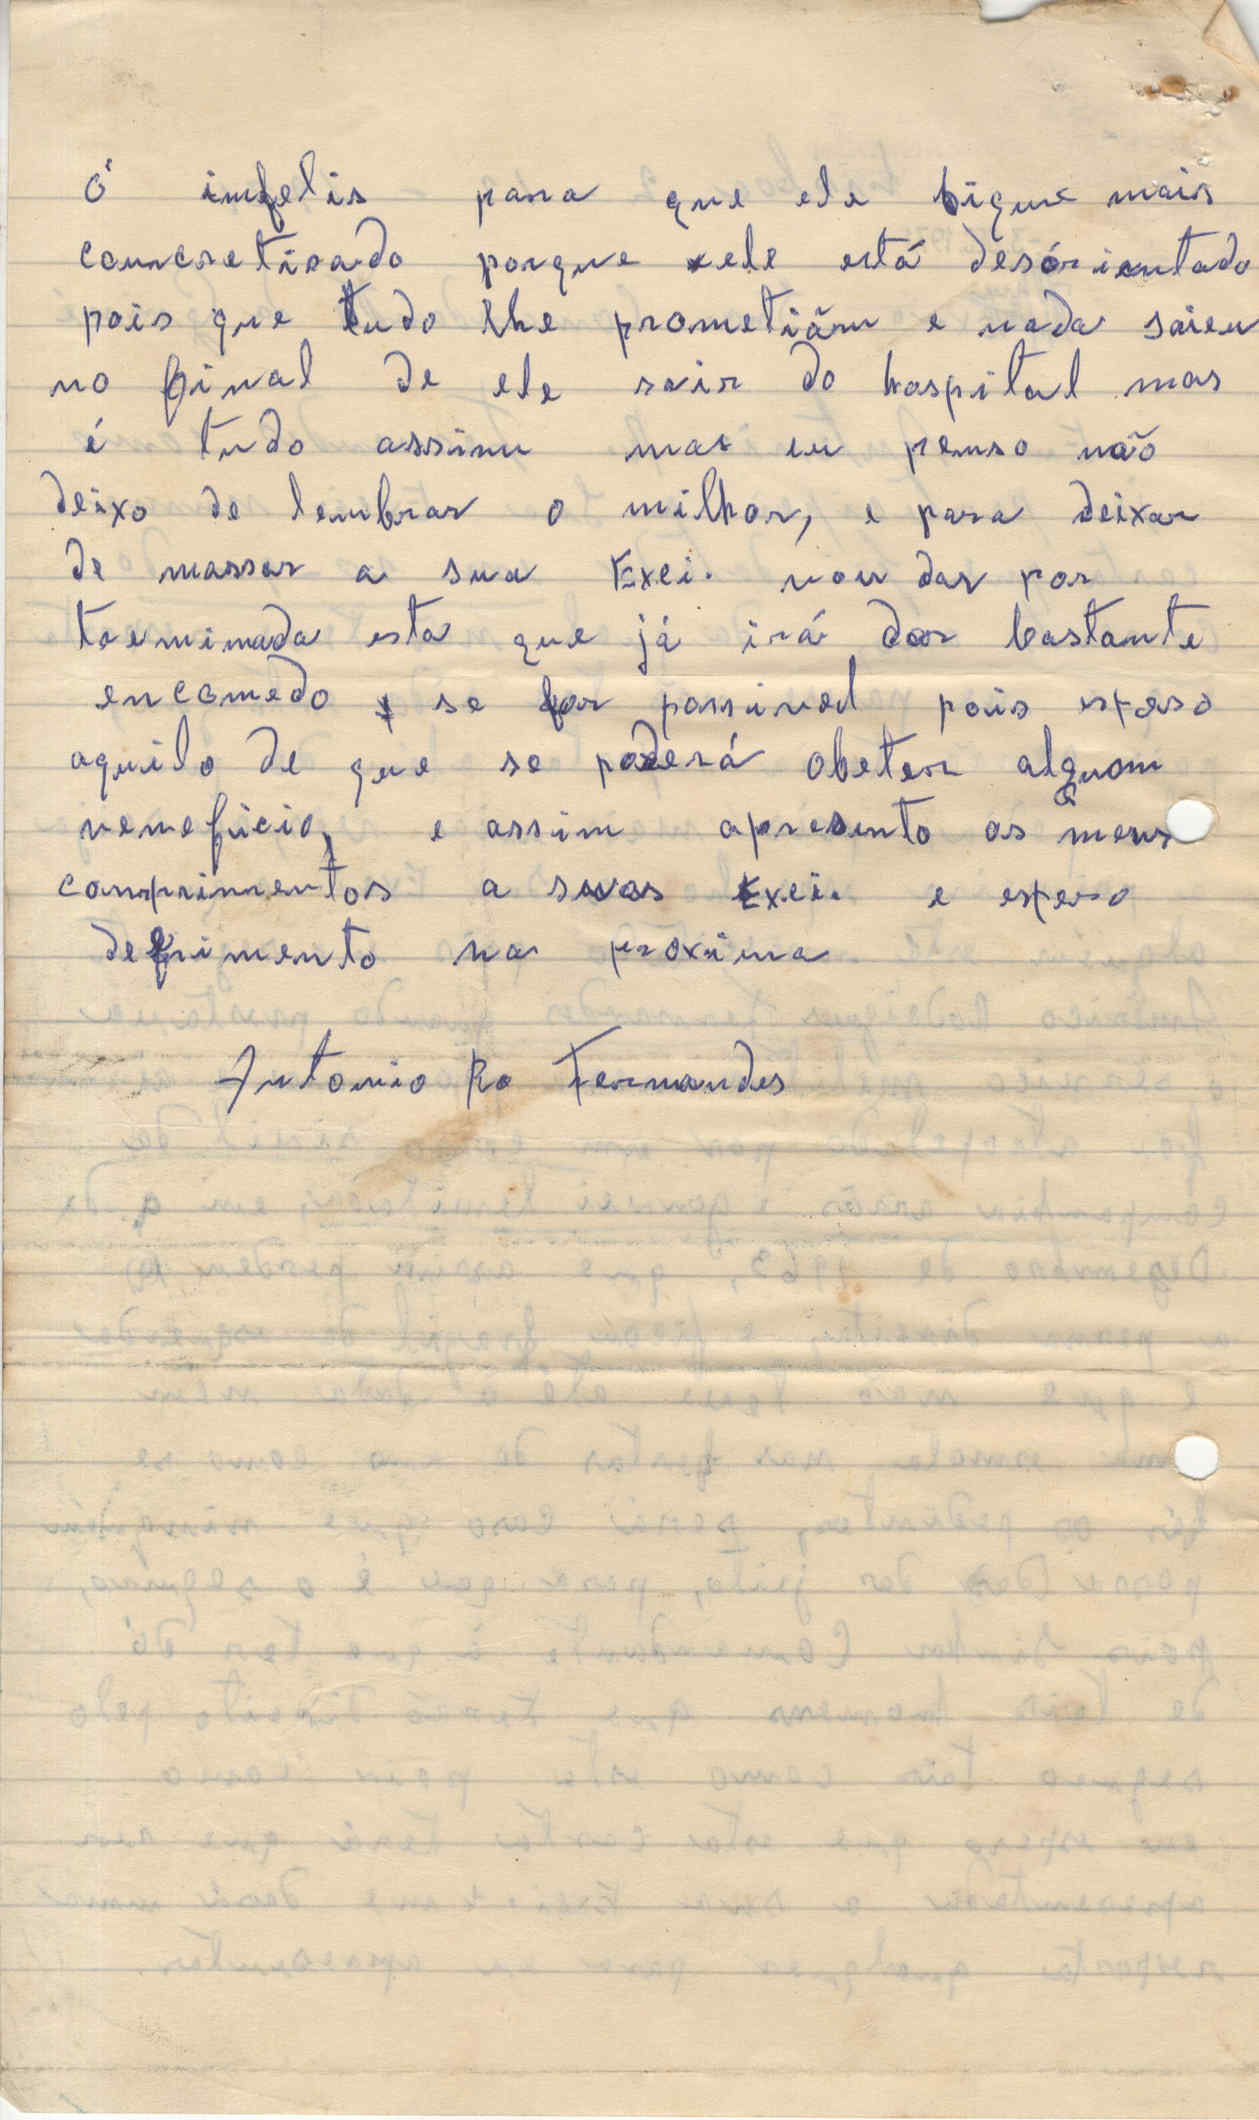 ó infelis para que ele fique mais
concretisado porque ele está desórientado
pois que tudo lhe prometiãm e nada saieu
no final de ele sair do hospital mas
é tudo assim mas eu penso não
deixo de lembrar o milhor, e para deixar
de massar a sua Exei. vou dar por
toeminada esta que já irá dar bastante
encomedo, se for possivel pois espero
aquilo de que se poderá obeter alguom
veneficio, e assim apresento os meus
comprimentos a suas Exei. e espero
defrimento na proxima
Antonio Ro Fernandes